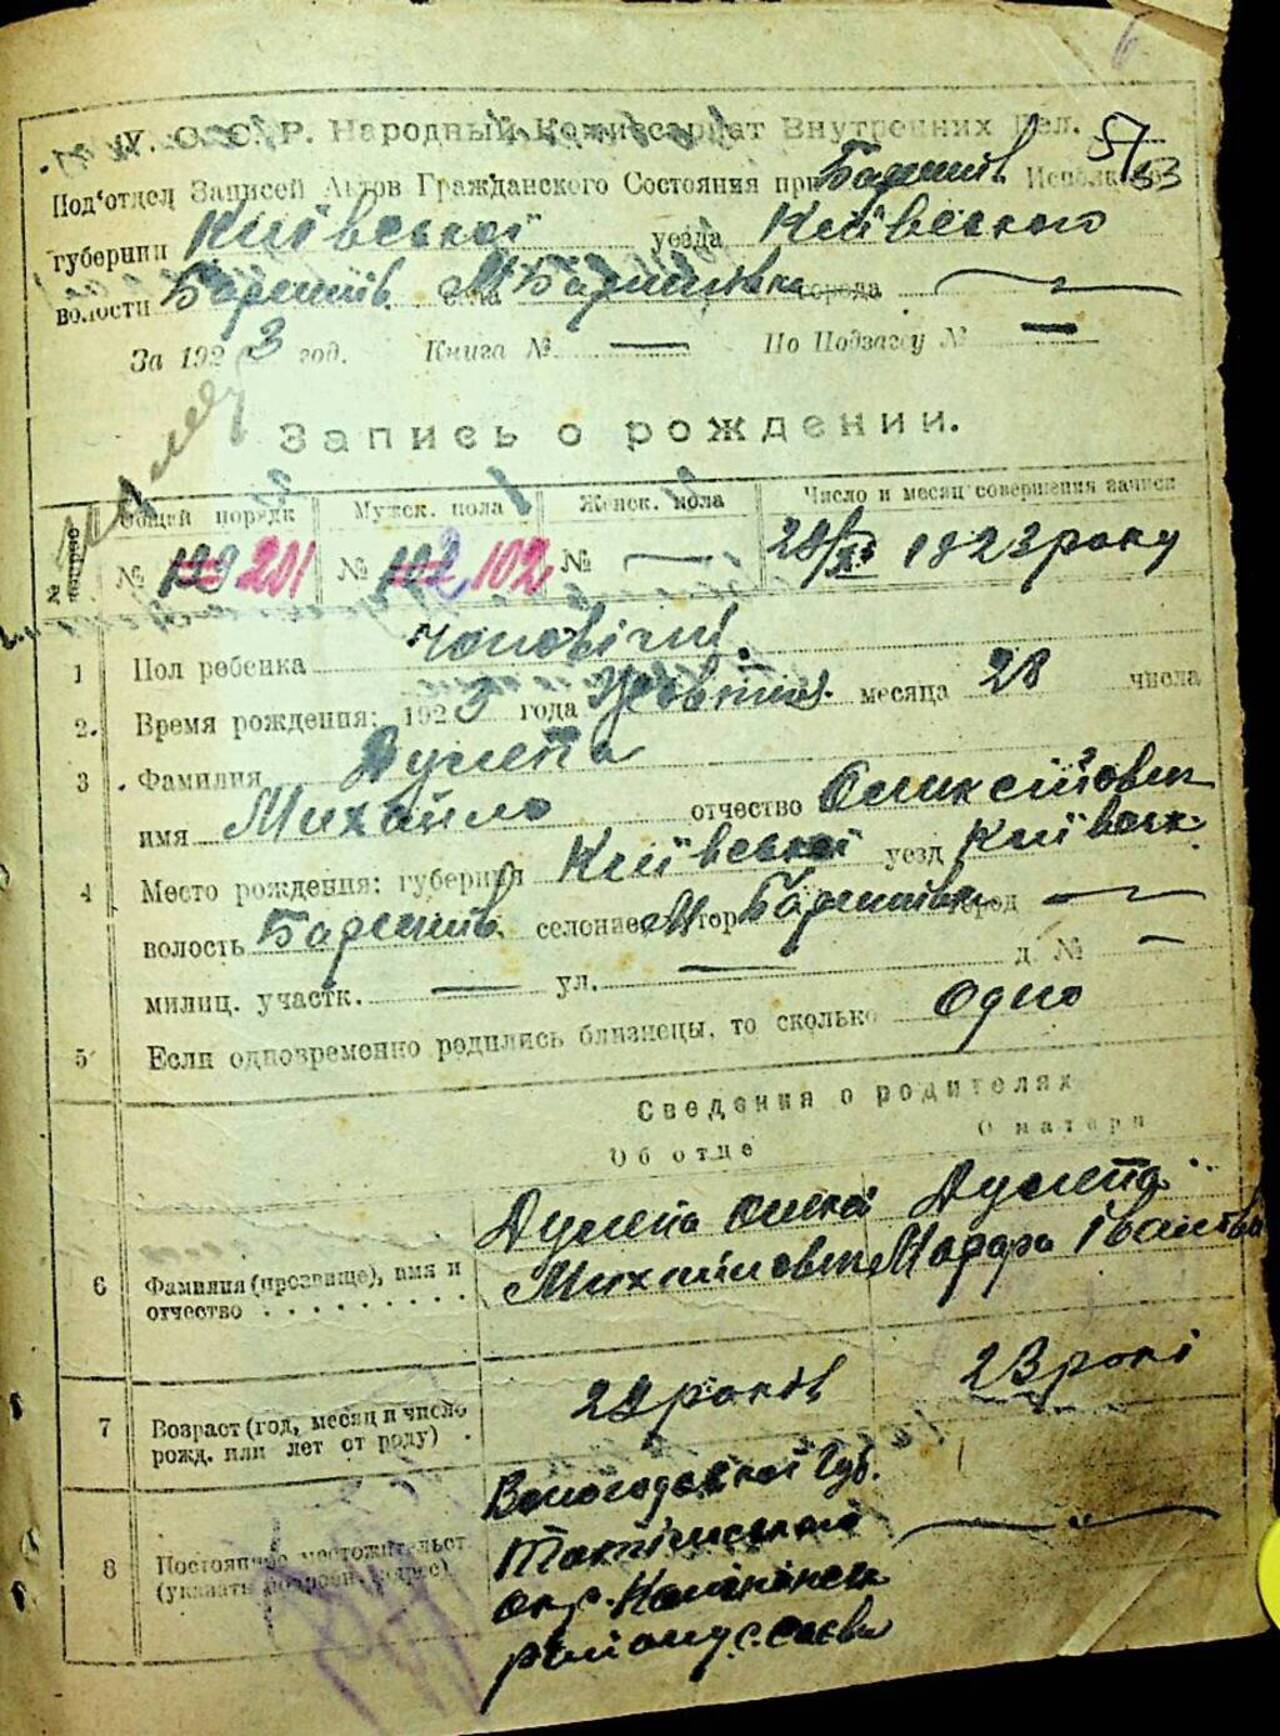 У. С. С. Р. Народный Комиссариат Внутренних Дел. 57
Под'отдел Записей Актов Гражданского Состояния при Баришів Исполк 53
губернии Київської уезда Київського
волости Баришів. села М Баришівка города —
За 1923 год. Книга № — По Подзагсу № —
Запись о рождении.
Общий порядк Мужск. пола Женск. пола Число и месяц совершения записи
№ 201 № 102 102 № — 28/XI 1923 року
1 Пол ребенка Чоловічий.
2. Время рождения: 1923 года месяца 28 числа
3. Фамилия Дулепа
имя Михайло отчество Олексійович
4 Место рождения: губерния Київської уезд Київськ.
волость Баришів селение М Баришівка город —
милиц. участк. — ул. — д. № —
5 Если одновременно родились близнецы, то сколько Одно
Сведения о родителях
Об отце О матери
Дулепа Олексій Дулепа
6 Фамилия (прозвище), имя и отчество Михайлович Іванівна
7 Возраст (год, месяц и число рожд. или лет от роду) . років 23 рокі
8 Постоянное местожительст. (указать подробн. адрес)
Вологодської Губ.
Тотімського —
окр.
району с.